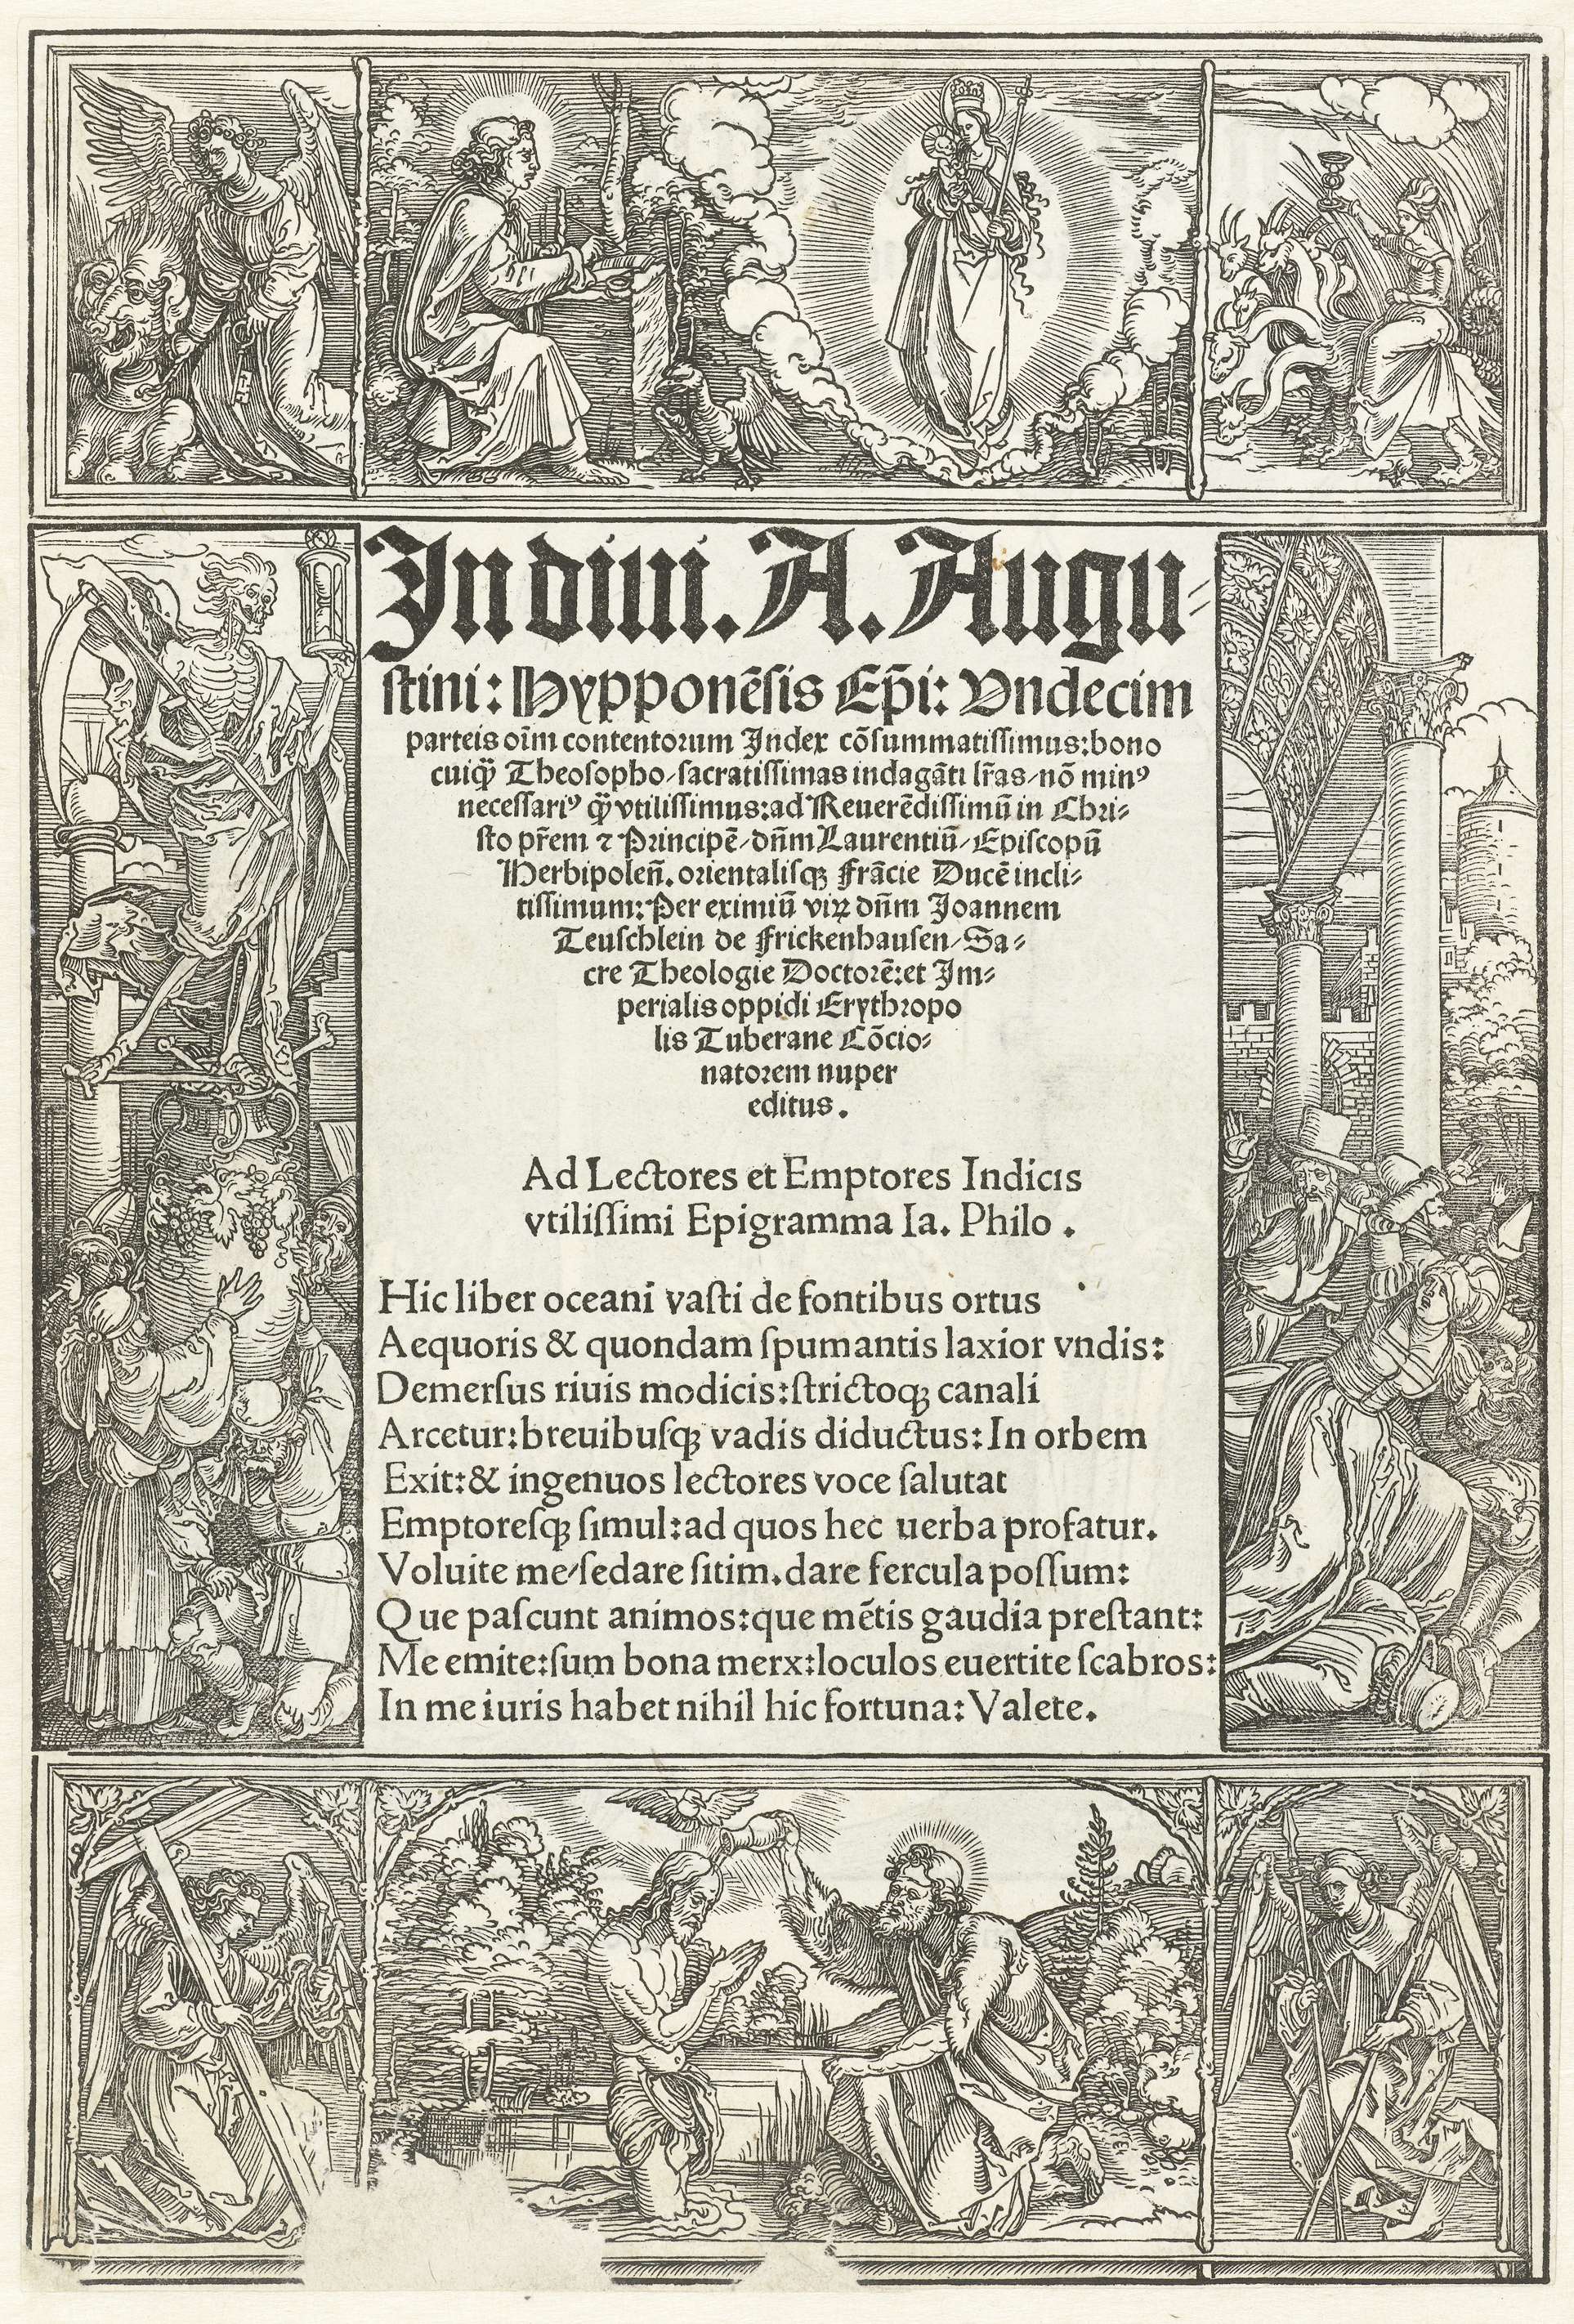 In diui. A. Augu⸗
ſtini: Hypponēſis Ep̄i: Vndecim
parteis oīm contentorum Index cōſummatiſſimus: bono
cuiq̄ꝫ Theoſopho/ſacratiſſimas indagāti lr̄as/nō minꝰ
neceſſariꝰ q̄ꝫ vtiliſſimus: ad Reuerēdiſſimū in Chri⸗
ſto pr̄em ⁊ Principē/dn̄m Laurentiū/Epiſcopū
Herbipoleñ. orientaliſqꝫ frācie Ducē incli⸗
tiſſimum: Per eximiū viꝝ dn̄m Joannem
Teuſchlein de Frickenhauſen/Sa⸗
cre Theologie Doctorē: et Im⸗
perialis oppidi Erythropo
lis Tuberane Cōcio⸗
natorem nuper
editus.
Ad Lectores et Emptores Indicis
vtiliſſimi Epigramma Ia. Philo .
Hic liber oceani vaſti de fontibus ortus
Aequoris & quondam ſpumantis laxior vndis:
Demerſus riuis modicis: ſtrictoqꝫ canali
Arcetur: breuibuſqꝫ vadis diductus: In orbem
Exit: & ingenuos lectores voce ſalutat
Emptoreſqꝫ ſimul: ad quos hec uerba profatur.
Voluite me/ſedare ſitim. dare fercula poſſum:
Que paſcunt animos: que mētis gaudia preſtant:
Me emite: ſum bona merx: loculos euertite ſcabros:
In me iuris habet nihil hic fortuna: Valete.